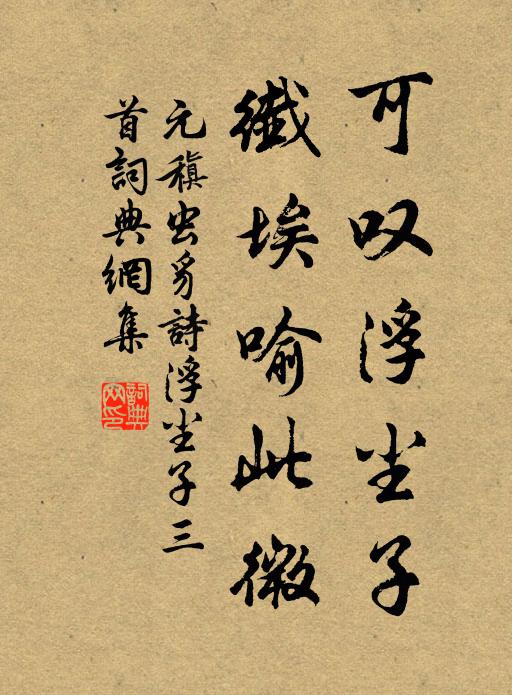 可叹浮尘子
纎埃喻此微
元稹虫豸詩浮尘子三
首詞典網集
詞典網印